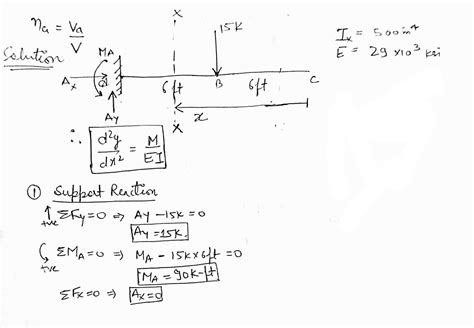 ηa = Va/V
Solution
X
15K
Ix = 500in⁴
E = 29×10³ ksi
MA
Ax
A
6ft
B
6ft
C
Ay
x
X
∴ d²y/dx² = M/EI
① Support Reaction
↑+ve ΣFy=0 ⇒ Ay -15K=0
Ay=15K.
+ve ΣMA=0 ⇒ MA - 15K×6ft =0
MA = 90K-ft
ΣFx=0 ⇒ Ax=0